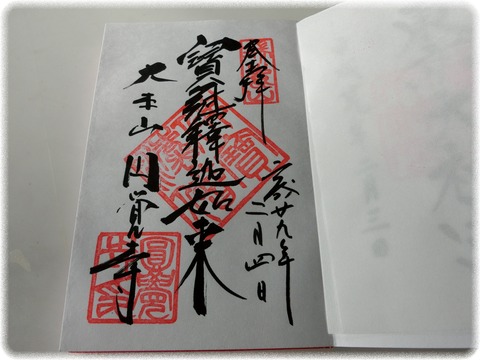 奉拝
平成廿九年
二月四日
寳冠釋迦如来
大本山
円覚寺